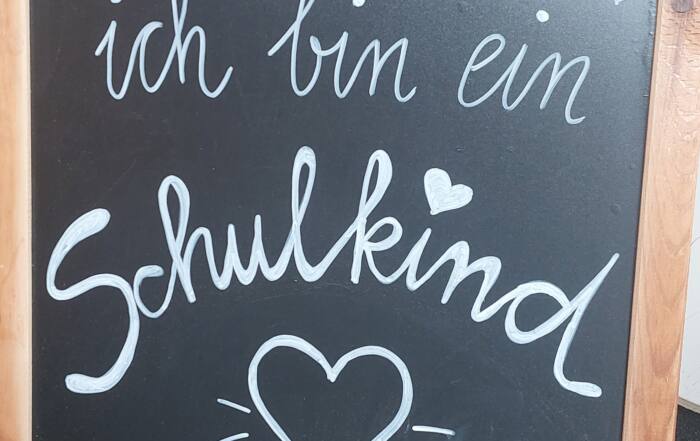 ich bin ein
Schulkind